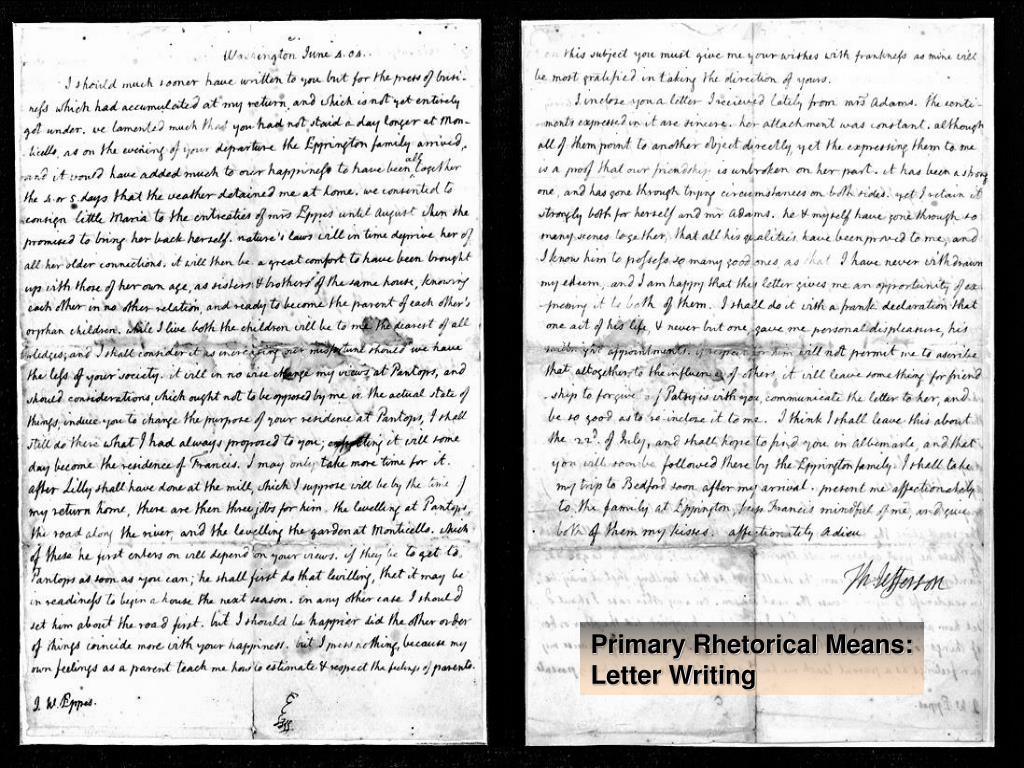 Washington June 4. 04.
I should much sooner have written to you but for the press of busi-
ness which had accumulated at my return, and which is not yet entirely
got under. we lamented much that you had not staid a day longer at Mon-
ticello, as on the evening of your departure the Eppington family arrived,
and it would have added much to our happiness to have been all together
the 4. or 5 days that the weather detained me at home. we consented to
consign little Maria to the entreaties of mrs Eppes until August when she
promised to bring her back herself. nature's laws will in time deprive her of
all her older connections. it will then be a great comfort to have been brought
up with those of her own age, as sisters & brothers of the same house, knowing
each other in no other relation, and ready to become the parent of each other's
orphan children. while I live both the children will be to me the dearest of all
pledges; and I shall consider it as increasing our misfortune should we have
the less of your society. it will in no wise change my views at Pantops, and
should considerations, which ought not to be opposed by me in the actual state of
things, induce you to change the purpose of your residence at Pantops, I shall
still do there what I had always proposed to you, expecting it will some
day become the residence of Francis. I may only take more time for it.
after Lilly shall have done at the mill, which I suppose will be by the time of
my return home, there are then three jobs for him. the levelling at Pantops,
the road along the river, and the levelling the garden at Monticello. which
of these he first enters on will depend on your views. if they be to get to
Pantops as soon as you can; he shall first do that levelling, that it may be
in readiness to begin a house the next season. in any other case I should
set him about the road first. but I should be happier did the other order
of things coincide more with your happiness. but I press nothing, because my
own feelings as a parent teach me how to estimate & respect the feelings of parents.
J. W. Eppes.
on this subject you must give me your wishes with frankness as mine will
be most gratified in taking the direction of yours.
I inclose you a letter I recieved lately from mrs Adams. the senti-
ments expressed in it are sincere. her attachment was constant. although
all of them point to another object directly, yet the expressing them to me
is a proof that our friendship is unbroken on her part. it has been a strong
one, and has gone through trying circumstances on both sides. yet I retain it
strongly both for herself and mr Adams. he & myself have gone through so
many scenes together, that all his qualities have been proved to me, and
I know him to possess so many good ones, as that I have never withdrawn
my esteem, and I am happy that this letter gives me an opportunity of ex-
pressing it to both of them. I shall do it with a frank declaration that
one act of his life, & never but one, gave me personal displeasure, his
midnight appointments. if respect for him will not permit me to ascribe
that altogether to the influence of others, it will leave something for friend
ship to forgive. if Patsy is with you, communicate the letter to her, and
be so good as to re-inclose it to me. I think I shall leave this about
the 22d. of July, and shall hope to find you in Albemarle, and that
you will soon be followed there by the Eppington family. I shall take
my trip to Bedford soon after my arrival. present me affectionately
to the family at Eppington, keep Francis mindful of me, and give
both of them my kisses. affectionately adieu
Th: Jefferson
Primary Rhetorical Means:
Letter Writing